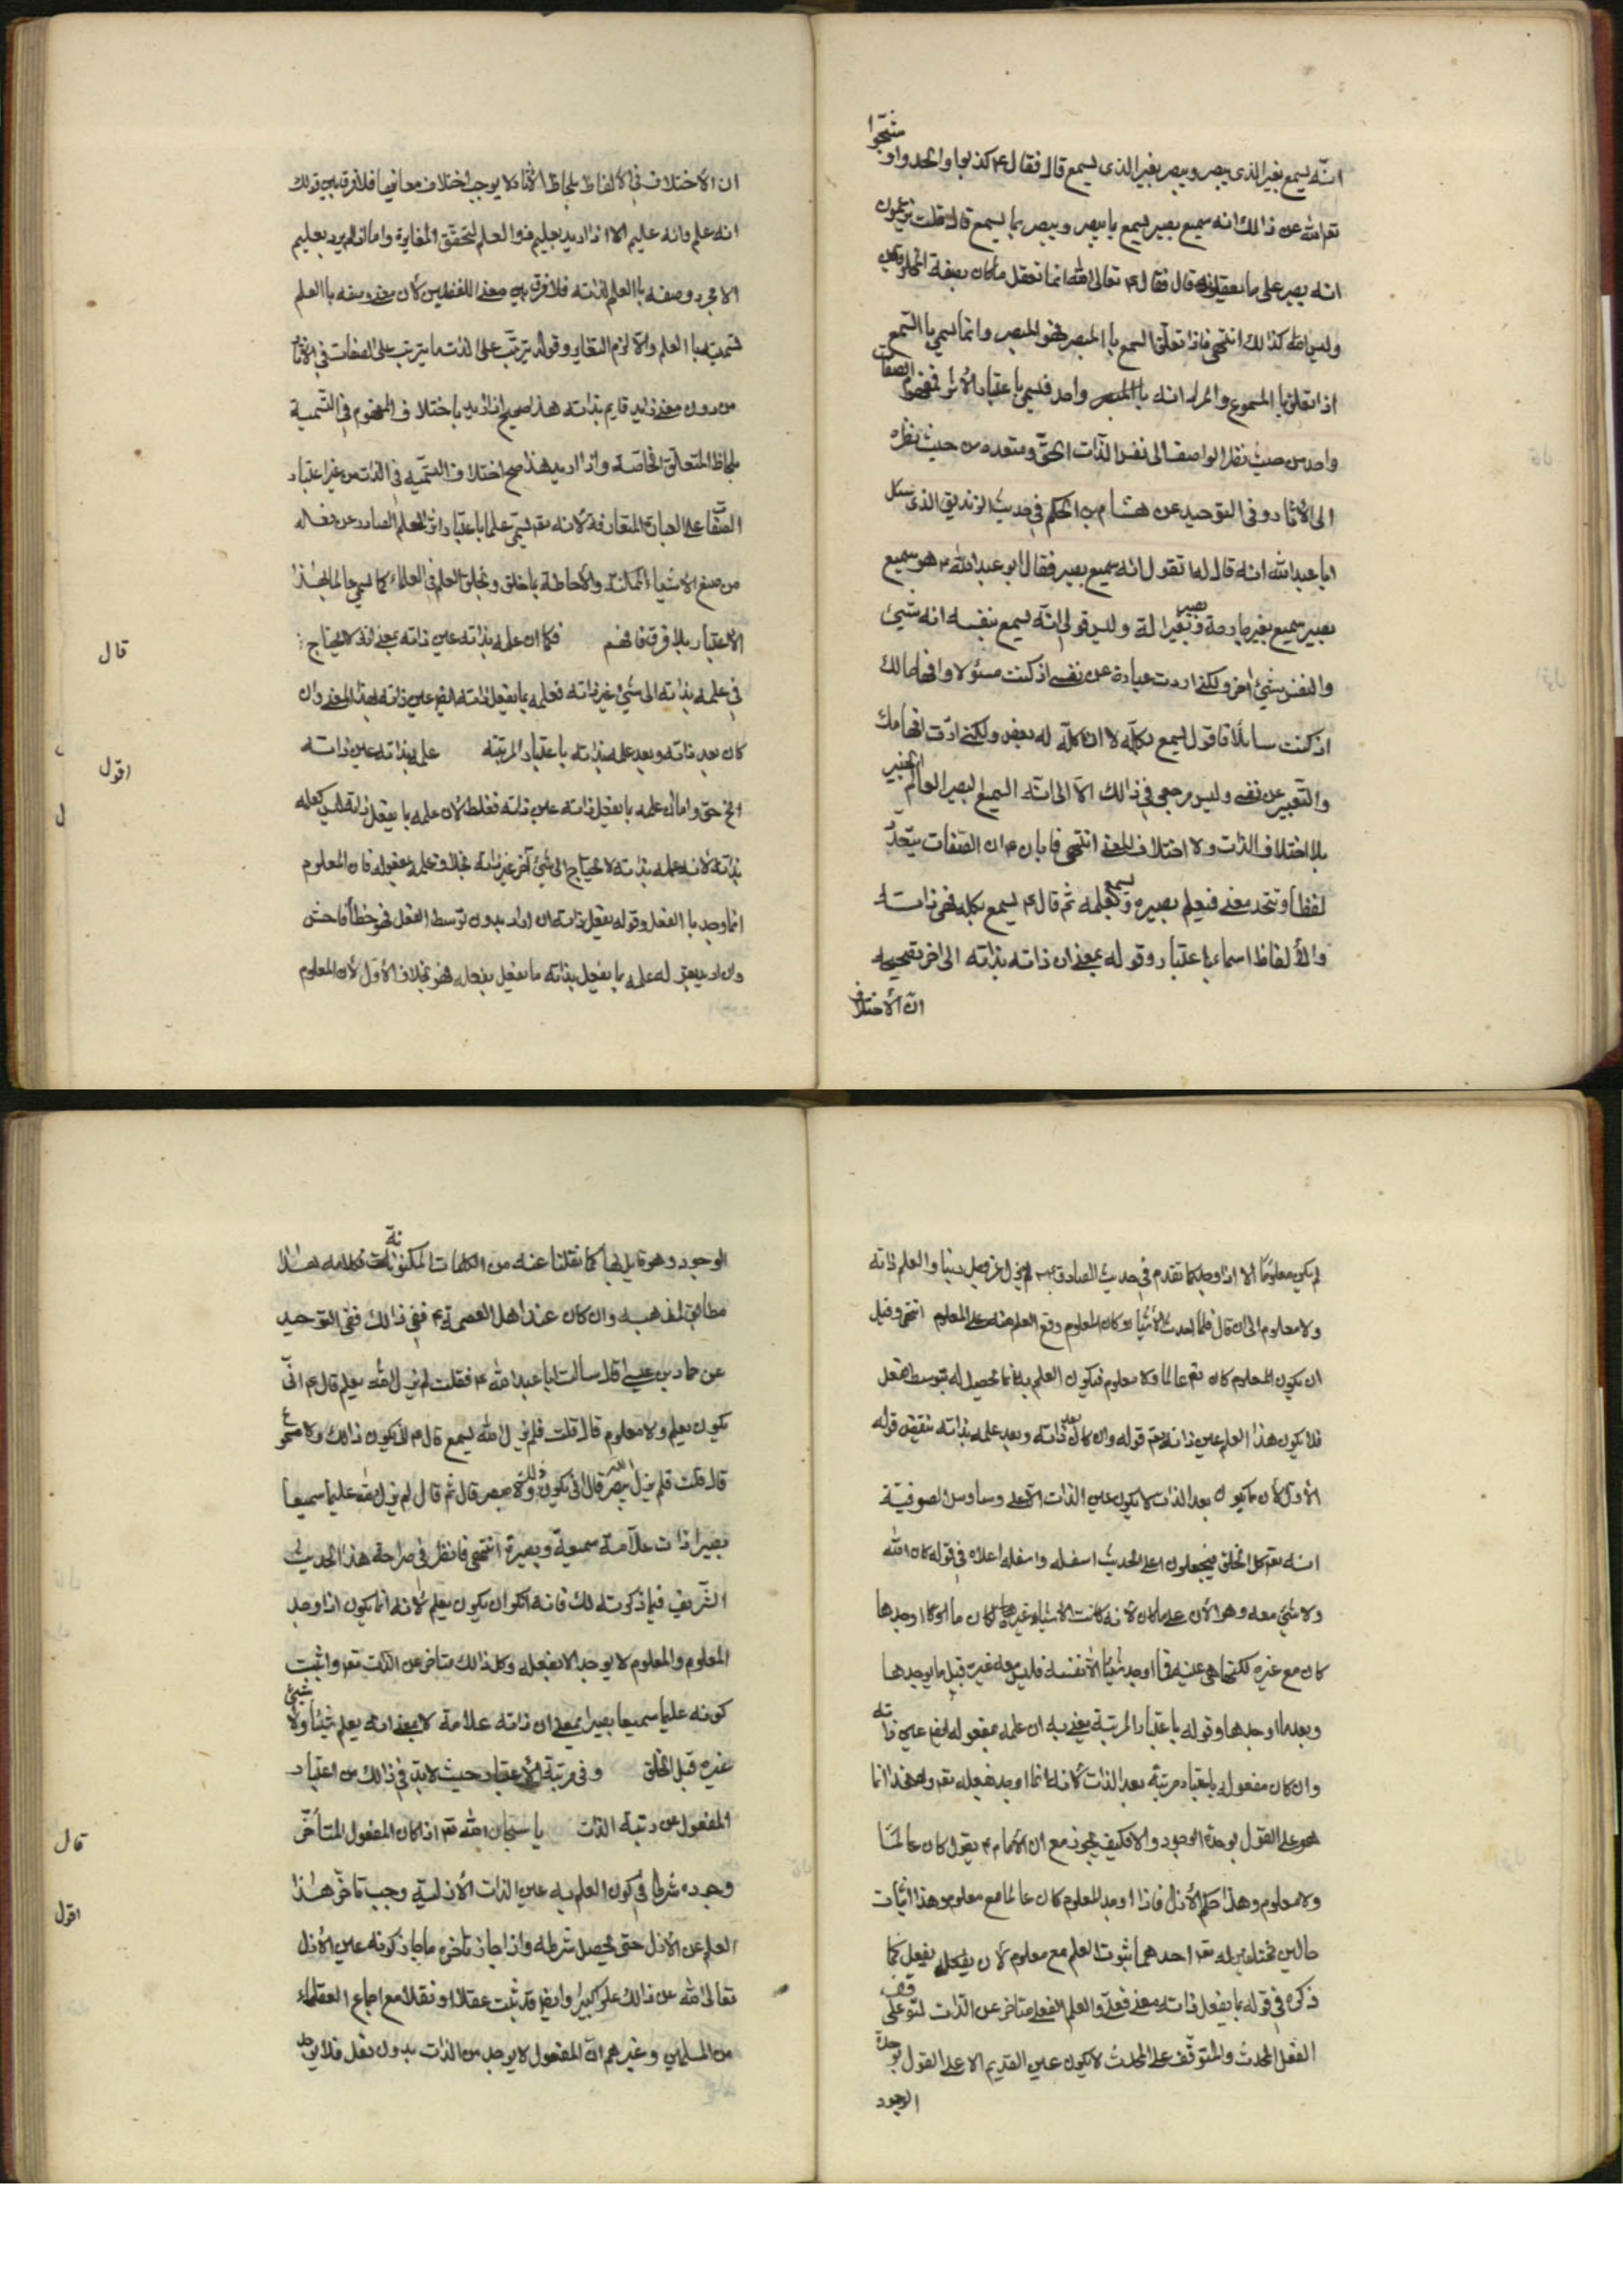 انّه يسمع بغير الذى يبصر ويبصر بغير الذى يسمع قال فقال ع كذبوا والحدوا و شبّهوا
تعالى الله عن ذالك انه سميع بصير يسمع بما يبصر ويبصر بما يسمع قال قلت يزعمون
انه بصير على ما يعقلونه قال فقال ع تعالى الله انما تعقل ما كان بصفة المخلوقين
وليس الله كذالك انتهى فاذا تعلق السمع باالمبصر فهو البصر وانما يسمى باالسمع
اذا تعلق باالمسموع والمراد انه باالمبصر واحد فيسمى باعتبار الأثر فمفهوم الصفات
واحد من حيث نظر الواصف الى نفس الذّات الحقّ ومتعدد من حيث نظره
الى الأثار وفى التوحيد عن هشام بن الحكم فى حديث الزنديق الذى سئل
ابا عبد الله انه قال له اتقول انّه سميع بصير فقال ابو عبد الله ع هو سميع
بصير سميع بغير جارحة وبصير بغير الة وليس قولى انّه يسمع بنفسه انه شيئ
والنفس شيئ اخر ولكنى اردت عبارة عن نفسى اذ كنت مسئولا وافهاما لك
اذ كنت سائلا فاقول يسمع بكلّه لا ان كلّه له بعض ولكنى اردت افهامك
والتعبير عن نفسى وليس مرجعى فى ذالك الاّ الى انّه السميع البصير العالم الخبير
بلا اختلاف الذّات ولا اختلاف المعنى انتهى فابان ع ان الصّفات يتعدّد
لفظاً وتتحد معنى فيعلم ببصره ويسمع بعلمه ثم قال ع يسمع بكله فهى ذات
والألفاظ اسماء باعتبار وقوله بمعنى ان ذاته بذاته الى اخر
انّ الأختلاف
ان الأختلاف فى الألفاظ بلحاظ الأثار لا يوجب اختلاف معانيها فلا فرق بين قولك
انه علم وانه عليم الا اذا اريد بعليم ذو العلم لتحقّق المغايرة واما اذا لم يرد بعليم
الا مجرد وصفه باالعلم لذاته فلا فرق بين معنى اللفظين لأن معنى وصفه باالعلم
تسميته باالعلم والاّ لزم التغاير وقوله يترتّب على الذات ما يترتب على الصفات فى الأثار
من دون معنى زايد قايم بذاته هذا صحيح اذا اريد باختلاف المفهوم فى التّسمية
بلحاظ المتعلّق الخاصّة واذا اريد هذا صح اختلاف التسمّيه فى الذات من غير اعتبار
الصّفات على العبارة المتعارفة لأنه تعم يسمّى علما باعتبار اثر العلم الصادر عن فعاله
من صنع الاشياء والأحاطة بما خلق وبخلق العلم فى العلماء كما يسمى عالما بهذا
الأعتبار بلا فرق فافهم فكما ان علمه بذاته عين ذاته بمعنى انه لا يحتاج
قال
فى علمه بذاته الى شيئ غير ذاته فعلمه بما يفعل ذاته ايضا عين ذاته بهذا المعنى وان
كان بعد ذاته وبعد علمه بذاته باعتبار المرتبة علمه بذاته عين ذاته
اقول
الخ حق واما ان علمه بما يفعل ذاته عين ذاته فغلط لأن علمه بما يفعل ذاته ليس كعلمه
بذاته لأنه علمه بذاته لا يحتاج الى شيئ آخر غير ذاته بخلاف علمه بمفعوله فان المعلوم
انما وجد باالفعل وقوله يفعل ذاته ان اراد بدون توسط الفعل فهو خطأ فاحش
وان اراد علمه بما يفعل بذاته ما يفعل بفعله فهو بخلاف الأوّل لأن المعلوم
لم يكن معلوما الا اذا وجد كما تقدم فى حديث الصادق ع لم يزل عز وجل ربنا والعلم ذاته
ولا معلوم الى ان قال فلما احدث الأشياء وكان المعلوم وقع العلم منه على المعلوم انتهى وقبل
ان يكون المعلوم كان تعم عالما ولا معلوم فيكون العلم به انما يحصل له بتوسط الفعل
فلا يكون هذا العلم عين ذاته تعم قوله وان كان بعد ذاته وبعد علمه بذاته ينقض قوله
الأوّل لأن ما يكون بعد الذات لا يكون عين الذات الاّ على وساوس الصوفيّة
انه تعم كل الخلق فيجعلون اعلى الحديث اسفله واسفله اعلاه فى قوله كان الله
ولا شيئ معه وهو الأن على ما كان لأنه كانت الاشياء غيره لكان ما اوجدها
كان مع غيره لكنها هى عينه فما اوجد شيئا الاّ نفسه فليس معه غير قبل ما يوجدها
وبعد ما اوجدها وقوله باعتبار المرتبة يعنى به ان علمه بمفعوله ايضا عين ذاته
وان كان مفعوله باعتبار مرتبة بعد الذات لأنه انما اوجد بفعله تعم وهذا انما
هو على القول بوحدة الوجود والا فكيف يجوز مع ان الأمام ع يقول كان عالما
ولا معلوم وهذا حكم الأزل فاذا اوجد المعلوم كان عالما مع معلوم وهذا اثبات
حالين مختلفين له تعم احدهما ثبوت العلم مع معلوم لأن بفعله يفعل كما
ذكره فى قوله بما يفعل ذاته بمعنى فعله والعلم الفعلى متاخر عن الذّات لتوقف على
الفعل المحدث والمتوقّف على المحدث لا يكون عين القديم الا على القول بوحدة
الوجود
الوجود وهو قايل بها كما نقلنا عنه من الكلمات المكنونة فكلامه هذا
مطابق لمذهبه وان كان عند اهل العصمة ع نفى ذالك ففى التوحيد
عن حماد بن عيسى قال سألت ابا عبد الله ع فقلت لم يزل الله يعلم قال ع انّى
يكون يعلم ولا معلوم قال قلت فلم يزل الله يسمع قال ع انّى يكون ذالك ولا مسموع
قال قلت فلم يزل الله يبصر قال انّى يكون ذلك ولا مبصر قال ثم قال لم يزل الله عليما سميعا
بصيرا ذات علاّمة سميعة وبصيرة انتهى فانظر فى صراحة هذا الحديث
الشّريف فيما ذكرته لك فانه انكر ان يكون يعلم لأنه انما يكون اذا وجد
المعلوم والمعلوم لا يوجد الا بفعله وكل ذالك متاخر عن الذات تعم واثبت
كونه عليما سميعا بصيرا بمعنى ان ذاته علامة لا بمعنى انه يعلم شيئا ولا شيئ
غيره قبل الخلق وفى مرتبة حيث لابدّ فى ذالك من اعتبار
قال
المفعول من رتبة الذات يا سبحان الله تعم اذا كان المفعول المتأخّر
اقول
وجوده شرطا فى كون العلم به عين الذات الأزلية وجب تأخّر هذا
العلم عن الأزل حتى يحصل شرطه واذا جاز تأخره ما جاز كونه عين الأزل
تعالى الله عن ذالك علوّا كبيرا وايضا قد ثبت عقلا ونقلا مع اجماع العقلاء
من المسلمين وغيرهم انّ المفعول لا يوجد من الذات بدون فعل فلا يوجد